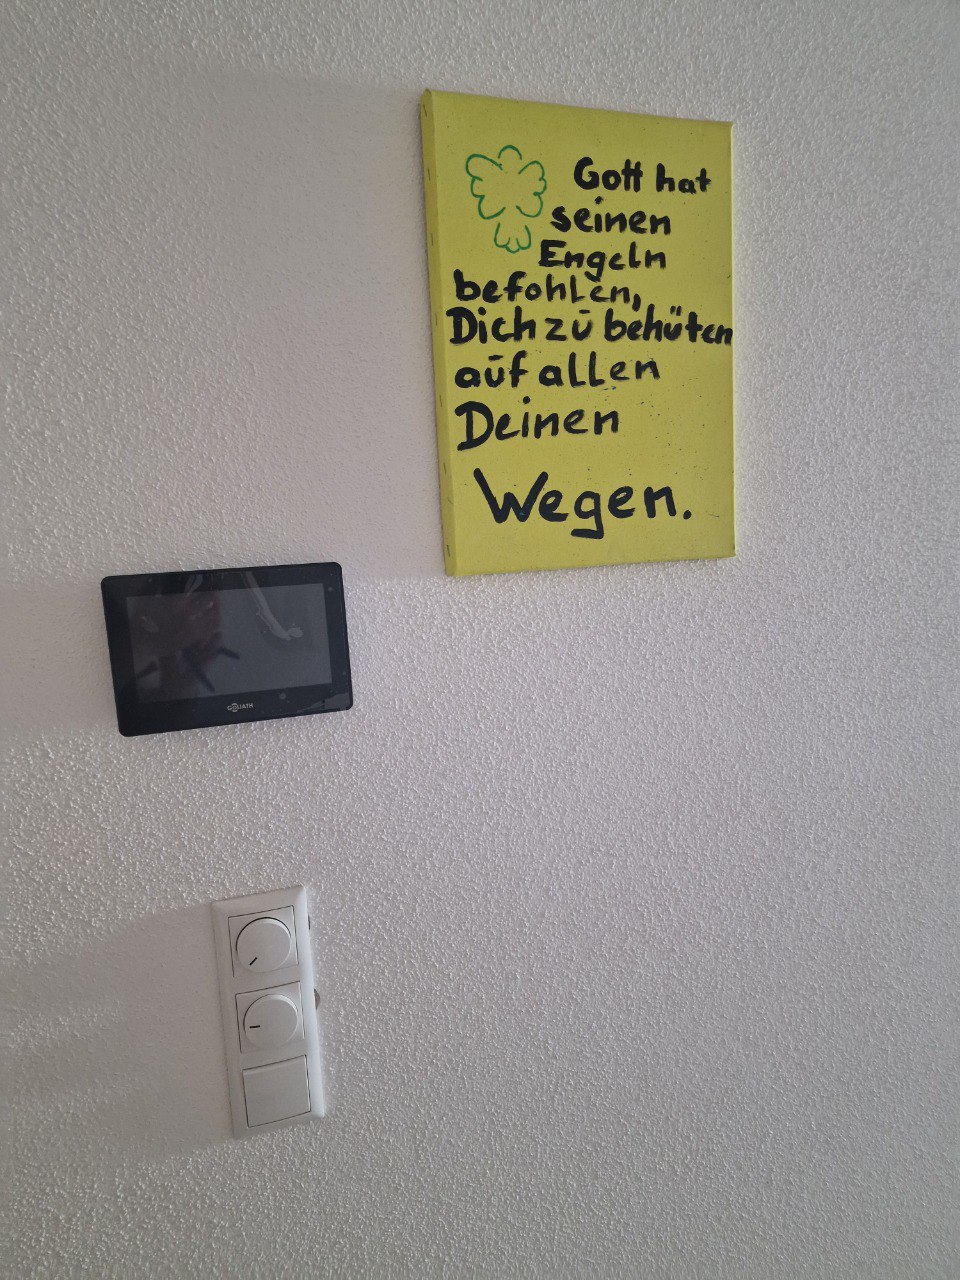 Gott hat
seinen
Engeln
befohlen,
Dich zū behüten
aūf allen
Deinen
Wegen.
GOLIATH